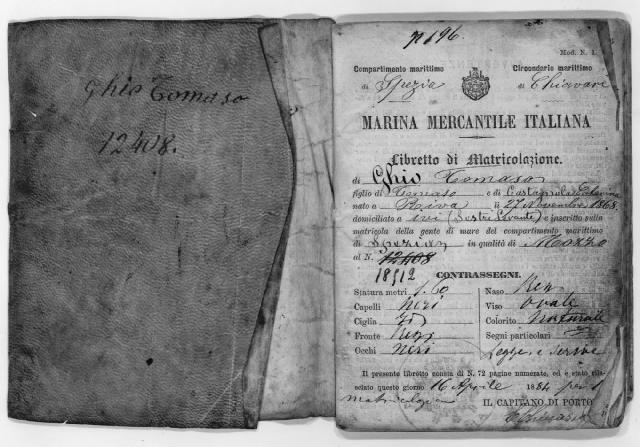 Ghio Tomaso
12408.
N 696.
Mod. N. 1.
Compartimento marittimo
di Spezia
Circondario marittimo
di Chiavari
MARINA MERCANTILE ITALIANA
Libretto di Matricolazione.
di Ghio Tomaso
figlio di Tomaso e di Castagnola Caterina
nato a Riva li 27 Novembre 1868
domiciliato a ivi (Sestri Levante) e inscritto sulla
matricola della gente di mare del compartimento marittimo
di Spezia in qualità di Mozzo
al N. 12408
18512
CONTRASSEGNI.
Statura metri 1.60
Capelli neri
Ciglia id
Fronte
Occhi neri
Naso
Viso ovale
Colorito naturale
Segni particolari
Legge e scrive
Il presente libretto consta di N. 72 pagine numerate, ed è stato rila-
sciato questo giorno 16 Aprile 1884 per
matricolazione
IL CAPITANO DI PORTO